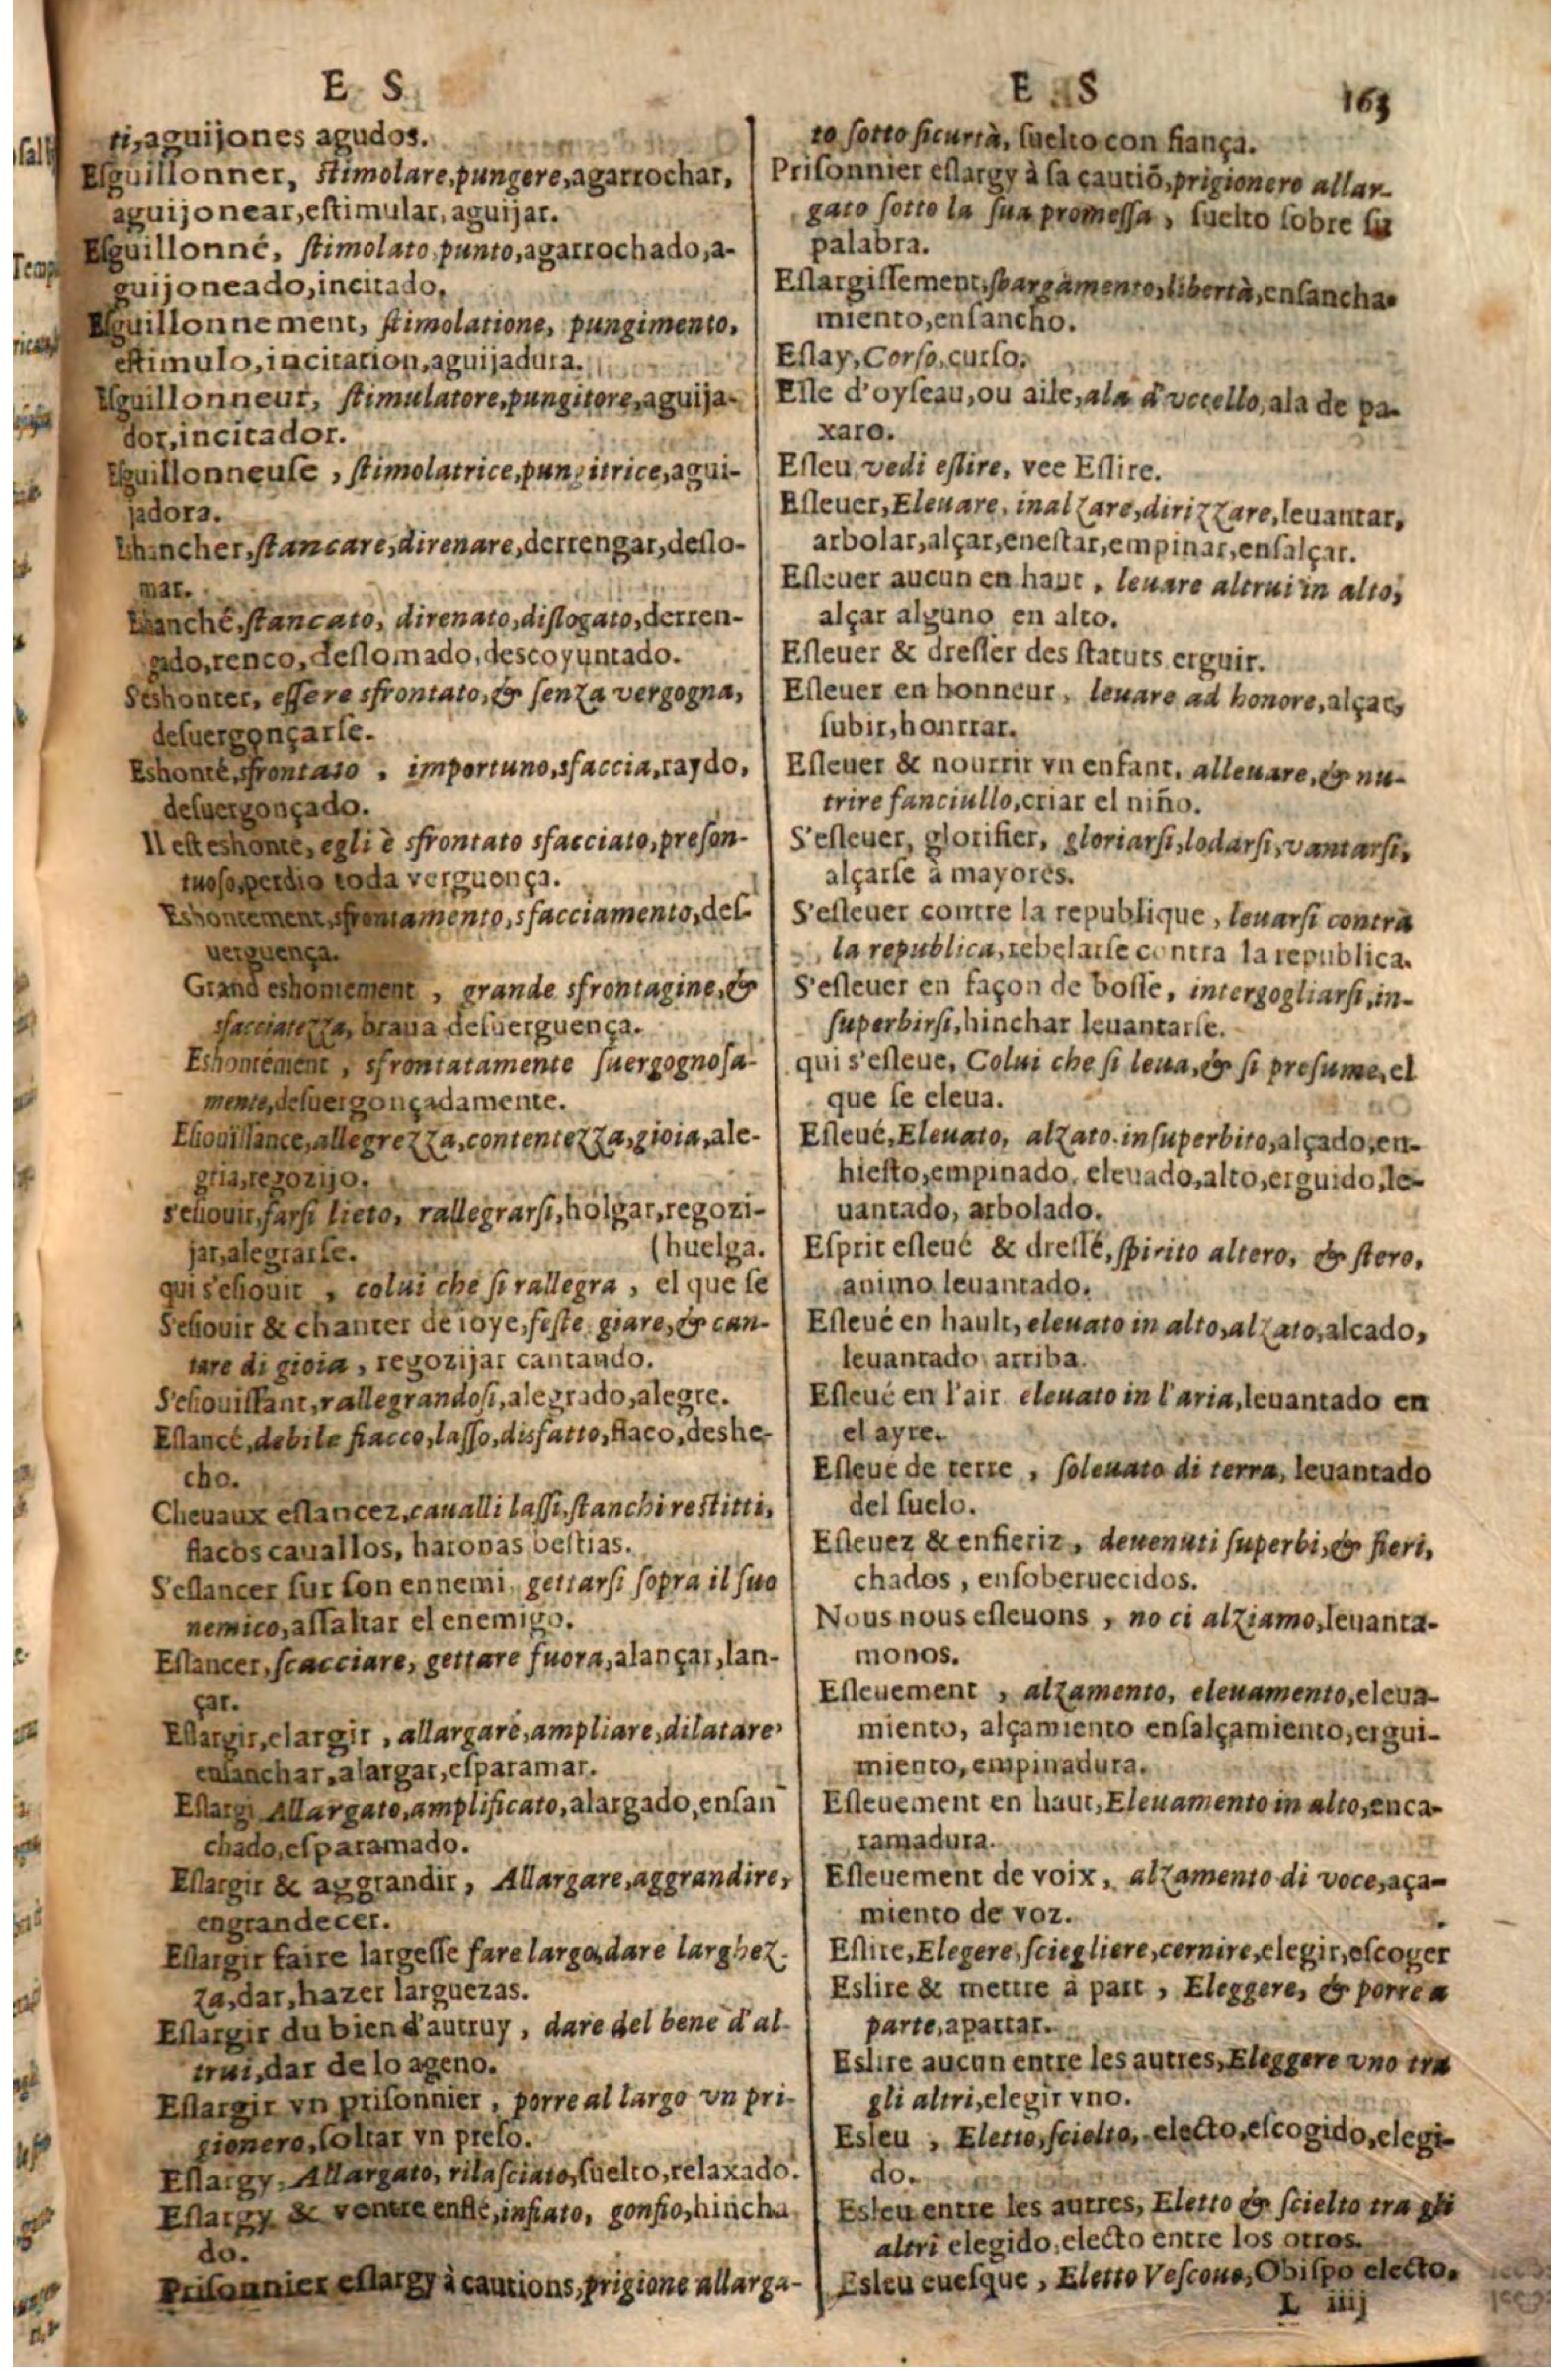 E S
ti, aguijones agudos.
Esguillonner, stimolare, pungere, agarrochar,
aguijonear, estimular, aguijar.
Esguillonné, stimolato, punto, agarrochado, a-
guijoneado, incitado.
Esguillonnement, stimolatione, pungimento,
estimulo, incitacion, aguijadura.
Esguillonneur, stimulatore, pungitore, aguija-
dor, incitador.
Esguillonneuse, stimolatrice, pungitrice, agui-
jadora.
Ehancher, stancare, direnare, derrengar, deslo-
mar.
Ehanché, stancato, direnato, dislogato, derren-
gado, renco, deslomado, descoyuntado.
S'eshonter, essere sfrontato, & senza vergogna,
desuergonçarse.
Eshonté, sfrontato, importuno, sfaccia, raydo,
desuergonçado.
Il est eshonté, egli è sfrontato sfacciato, preson-
tuoso, perdio toda verguença.
Eshontement, sfrontamento, sfacciamento, des-
uerguença.
Grand eshontement, grande sfrontagine, &
sfacciatezza, braua desuerguença.
Eshontément, sfrontatamente suergognosa-
mente, desuergonçadamente.
Esiouïssance, allegrezza, contentezza, gioia, ale-
gria, regozijo.
s'esiouir, farsi lieto, rallegrarsi, holgar, regozi-
jar, alegrarse. (huelga.
qui s'esiouit, colui che si rallegra, el que se
S'esiouir & chanter de ioye, feste giare, & can-
tare di gioia, regozijar cantando.
S'esiouissant, rallegrandosi, alegrado, alegre.
Eslancé, debile fiacco, lasso, disfatto, flaco, deshe-
cho.
Cheuaux eslancez, caualli lassi, stanchi restitti,
flacos cauallos, haronas bestias.
S'eslancer sur son ennemi, gettarsi sopra il suo
nemico, assaltar el enemigo.
Eslancer, scacciare, gettare fuora, alançar, lan-
çar.
Eslargir, elargir, allargare, ampliare, dilatare,
ensanchar, alargar, esparamar.
Eslargi Allargato, amplificato, alargado, ensan
chado, esparamado.
Eslargir & aggrandir, Allargare, aggrandire,
engrandecer.
Eslargir faire largesse fare largo, dare larghez-
za, dar, hazer larguezas.
Eslargir du bien d'autruy, dare del bene d'al-
trui, dar de lo ageno.
Eslargir vn prisonnier, porre al largo vn pri-
gionero, soltar vn preso.
Eslargy, Allargato, rilasciato, suelto, relaxado.
Eslargy & ventre enflé, infiato, gonfio, hincha
do.
Prisonnier eslargy à cautions, prigione allarga-
E S 163
to sotto sicurtà, suelto con fiança.
Prisonnier eslargy à sa cautiõ, prigionero allar-
gato sotto la sua promessa, suelto sobre su
palabra.
Eslargissement, sbargamento, libertà, ensancha-
miento, ensancho.
Eslay, Corso, curso.
Esle d'oyseau, ou aile, ala d'vccello, ala de pa-
xaro.
Esleu, vedi eslire, vee Eslire.
Esleuer, Eleuare, inalzare, dirizzare, leuantar,
arbolar, alçar, enestar, empinar, ensalçar.
Esleuer aucun en haut, leuare altrui in alto,
alçar alguno en alto.
Esleuer & dresser des statuts erguir.
Esleuer en honneur, leuare ad honore, alçar,
subir, honrrar.
Esleuer & nourrir vn enfant, alleuare, & nu-
trire fanciullo, criar el niño.
S'esleuer, glorifier, gloriarsi, lodarsi, vantarsi,
alçarse à mayores.
S'esleuer contre la republique, leuarsi contra
la republica, rebelarse contra la republica.
S'esleuer en façon de bosse, intergogliarsi, in-
superbirsi, hinchar leuantarse.
qui s'esleue, Colui che si leua, & si presume, el
que se eleua.
Esleué, Eleuato, alzato insuperbito, alçado, en-
hiesto, empinado, eleuado, alto, erguido, le-
uantado, arbolado.
Esprit esleué & dressé, spirito altero, & stero,
animo leuantado.
Esleué en hault, eleuato in alto, alzato, alcado,
leuantado arriba.
Esleué en l'air eleuato in l'aria, leuantado en
el ayre.
Esleué de terre, soleuato di terra, leuantado
del suelo.
Esleuez & enfieriz, deuenuti superbi, & fieri,
chados, ensoberuecidos.
Nous nous esleuons, no ci alziamo, leuanta-
monos.
Esleuement, alzamento, eleuamento, eleua-
miento, alçamiento ensalçamiento, ergui-
miento, empinadura.
Esleuement en haut, Eleuamento in alto, enca-
ramadura.
Esleuement de voix, alzamento di voce, aça-
miento de voz.
Eslire, Elegere, sciegliere, cernire, elegir, escoger
Eslire & mettre à part, Eleggere, & porre a
parte, apartar.
Eslire aucun entre les autres, Eleggere vno tra
gli altri, elegir vno.
Esleu, Eletto, scielto, electo, escogido, elegi-
do.
Esleu entre les autres, Eletto & scielto tra gli
altri elegido, electo entre los otros.
Esleu euesque, Eletto Vescouo, Obispo electo.
L iiij